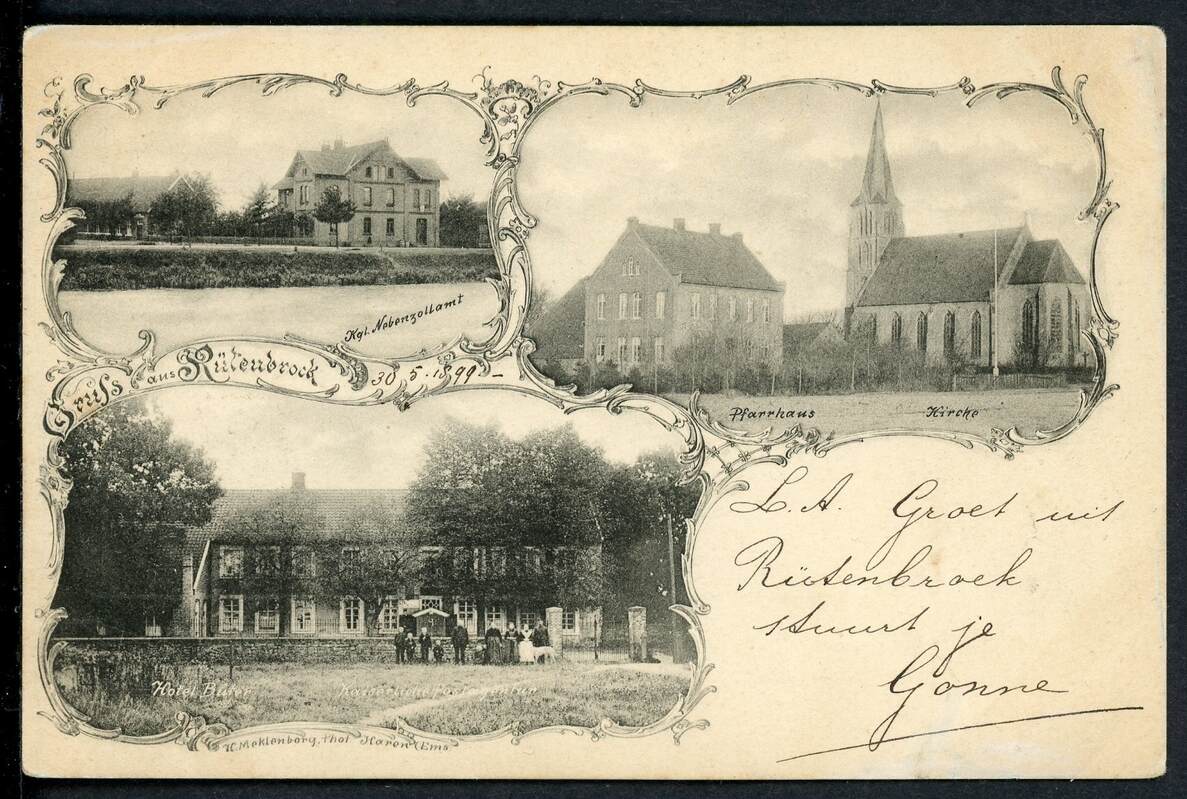 Kgl. Nebenzollamt
Gruss aus Rütenbrock
30.5.1899.-
Pfarrhaus Kirche
L.A. Groet uit
Rütenbroek
stuurt je
Gonne
Hotel Büter Kaiserliche Postagentur
H. Meklenborg, Phot. Haren/Ems